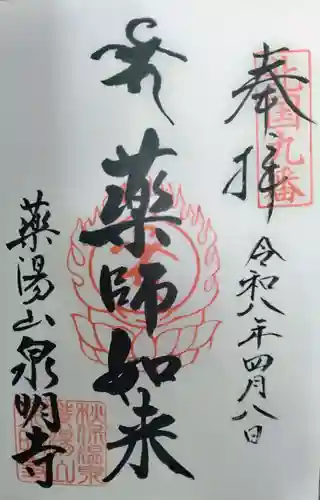 奉拝
北国九番
令和八年四月八日
薬師如来
薬湯山泉明寺